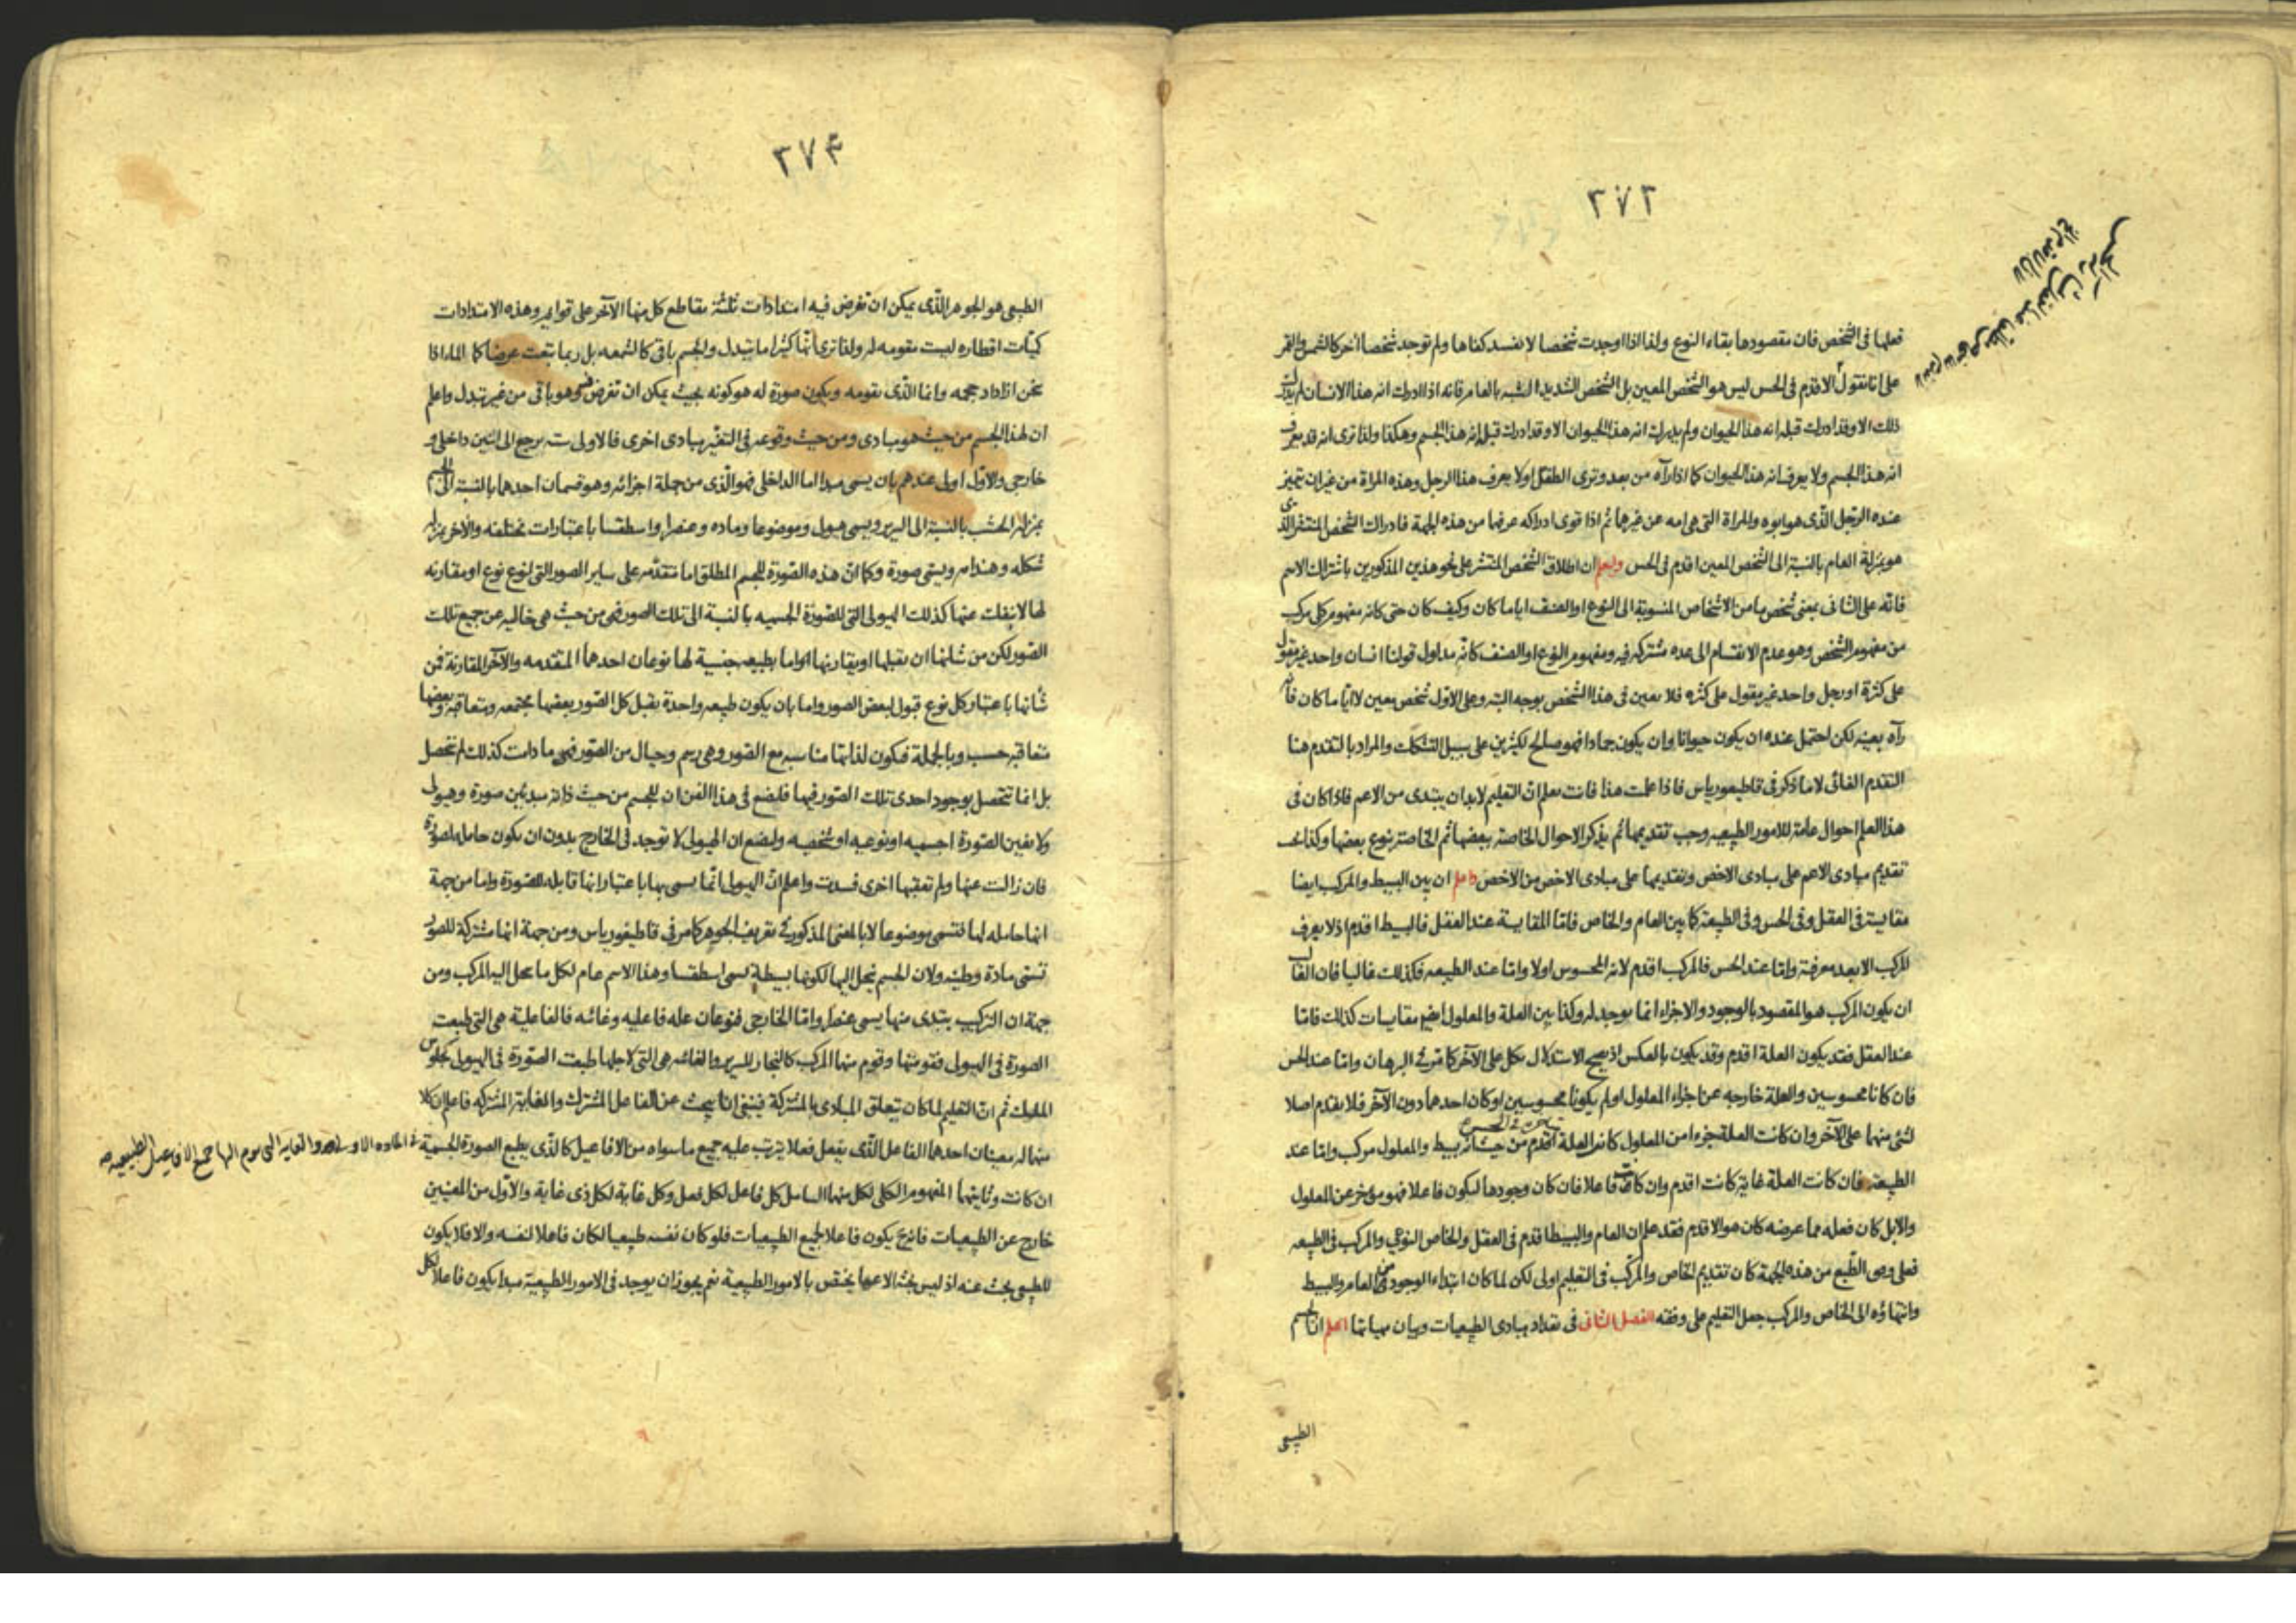 ٢٧٣
فعلها فى الشخص فان مقصودها بقاء النوع ولذا اذا اوجدت شخصا لا يفسد كفاها ولم توجد شخصا آخر كالشمس والقمر
على انا نقول الاقدم فى الحس ليس هو الشخص المعين بل الشخص الشديد الشبه بالعام فانه اذا ادرك انه هذا الانسان لم يدرك
ذلك الا وقد ادرك قبله انه هذا الحيوان ولم يدرك انه هذا الحيوان الا وقد ادرك قبل انه هذا الجسم وهكذا ولذا ترى انه قد يعرف
انه هذا الجسم ولا يعرف انه هذا الحيوان كما اذا رآه من بعد وترى الطفل اولا يعرف هذا الرجل وهذه المراة من غير ان يتميز
عنده الرجل الذى هو ابوه والمراة التى هى امه عن غيرهما ثم اذا قوى ادراكه عرفها من هذه الجهة فادراك الشخص المنتشر الذى
هو بمنزلة العام بالنسبة الى الشخص المعين اقدم فى الحس واعلم ان اطلاق الشخص المنتشر على نحو هذين المذكورين باشتراك الاسم
فانه على الثانى بمعنى شخص ما من الاشخاص المنسوبة الى النوع او الصنف ايا ما كان وكيف كان حتى كانه مفهوم كلى مركب
من مفهوم الشخص وهو عدم الانقسام الى عدة مشتركة فيه ومفهوم النوع او الصنف كانه مدلول قولنا انسان واحد غير مقول
على كثرة او رجل واحد غير مقول على كثره فلا تعين فى هذا الشخص بوجه البته وعلى الاول شخص معين لا ايا ما كان فانه
رآه بعينه لكن احتمل عنده ان يكون حيوانا وان يكون جمادا فهو صالح لكثيرين على سبيل التشكك والمراد بالتقدم هنا
التقدم الغائى لا ما ذكر فى قاطيغورياس فاذا علمت هذا فانت تعلم ان التعليم لا بد ان يبتدى من الاعم فاذا كان فى
هذا العلم احوال عامة للامور الطبيعيه وجب تقديمها ثم يذكر الاحوال الخاصة ببعضها ثم الخاصة بنوع بعضها وكذا يجب
تقديم مبادى الاعم على مبادى الاخص وتقديمها على مبادى الاخص من الاخص واعلم ان بين البسيط والمركب ايضا
مقايسة فى العقل وفى الحس وفى الطبيعة كما بين العام والخاص فاما المقايسة عند العقل فالبسيط اقدم اذ لا يعرف
المركب الا بعد معرفة واما عند الحس فالمركب اقدم لانه المحسوس اولا واما عند الطبيعه فكذلك غالبا فان الغالب
ان يكون المركب هو المقصود بالوجود والاجزاء انما يوجد له وكذا بين العلة والمعلول ايضا مقايسات كذلك فاما
عند العقل فقد يكون العلة اقدم وقد يكون بالعكس اذ يصح الاستدلال بكل على الآخر كما مر فى البرهان واما عند الحس
فان كانا محسوسين والعلة خارجه عن اجزاء المعلول او لم يكونا محسوسين او كان احدهما دون الآخر فلا يقدم اصلا
لشئ منهما على الآخر وان كانت العلة جزءا من المعلول كانت العلة اقدم من حيث انه بسيط والمعلول مركب واما عند
الطبيعة فان كانت العلة غاية كانت اقدم وان كانت فاعلا فان كان وجودها ليكون فاعلا فهو مؤخر عن المعلول
والا بل كان فعله مما عرضه كان هو الاقدم فقد علم ان العام والبسيط اقدم فى العقل والخاص النوعى والمركب فى الطبيعه
فعلى وفق الطبع من هذه الجهة كان تقديم الخاص والمركب فى التعليم اولى لكن لما كان ابتداء الوجود من العام والبسيط
وانتهاؤه الى الخاص والمركب جعل التعليم على وفقه الفصل الثانى فى تعداد مبادى الطبيعيات وبيان مهياتها اعلم ان الجسم
الطبيعى
٢٧٤
الطبيعى هو الجوهر الذى يمكن ان تفرض فيه امتدادات ثلثة يقاطع كل منها الآخر على قوايم وهذه الامتدادات
كميات اقطاره ليست مقومه له ولذا ترى انها كثيرا ما يتبدل والجسم باقى كالشمعه بل ربما تبعت عرضا كما الماء اذا
سخن ازداد حجمه وانما الذى يقومه ويكون صورة له هو كونه بحيث يمكن ان تفرض فيه وهو باقى من غير تبدل واعلم
ان لهذا الجسم من حيث هو مبادى ومن حيث وقوعه فى التغير مبادى اخرى فالاولى ستة يرجع الى اثنين داخلى و
خارجى والاول اولى عندهم بان يسمى مبدا اما الداخلى فهو الذى من جملة اجزائه وهو قسمان احدهما بالنسبة الى الجسم
بمنزلة الخشب بالنسبة الى السرير ويسمى هيولى وموضوعا وماده وعنصرا واسطقسا باعتبارات مختلفه والآخر بمنزلة
شكله وهندامه ويسمى صورة وكما ان هذه الصورة للجسم المطلق اما متقدمه على ساير الصور التى لنوع نوع او مقارنه
لها لا ينفك عنها كذلك الهيولى التى للصورة الجسميه بالنسبة الى تلك الصور فهى من حيث هى خاليه عن جميع تلك
الصور لكن من شانها ان يقبلها او يقارنها اما بطبيعه جنسية لها نوعان احدهما المتقدمه والآخر المقارنة فمن
شانها باعتبار كل نوع قبول لبعض الصور واما بان يكون طبيعه واحدة يقبل كل الصور بعضها مجتمعه ومتعاقبه وبعضها
متعاقبه حسب وبالجملة فيكون لذاتها مناسبه مع الصور وهى رسم وخيال من الصور فهى ما دامت كذلك لم تتحصل
بل انما تتحصل بوجود احدى تلك الصور فيها فليضع فى هذا الفن ان للجسم من حيث ذاته مبدئين صورة وهيولى
ولا يعين الصورة اجسميه او نوعيه او شخصيه وليضع ان الهيولى لا توجد فى الخارج بدون ان يكون حامله لصورة
فان زالت عنها ولم تعقبها اخرى فسدت واعلم ان الهيولى انما يسمى بها باعتبار انها قابله للصورة واما من جهة
انها حامله لها فتسمى موضوعا لا بالمعنى المذكور فى تعريف الجوهر كما مر فى قاطيغورياس ومن جهة انها مشتركة للصور
تسمى مادة وطينه ولان الجسم ينحل اليها لكونها بسيطة تسمى اسطقسا وهذا الاسم عام لكل ما ينحل اليه المركب ومن
جهة ان التركيب يبتدى منها يسمى عنصرا واما الخارجى فنوعان عله فاعليه وغائيه فالفاعلية هى التى طبعت
الصورة فى الهيولى فقومتها وقوم منهما المركب كالنجار للسرير والغائيه هى التى لاجلها طبعت الصورة فى الهيولى كجلوس
الملك ثم ان التعليم لما كان يتعلق المبادى بالمشتركة فينبغى ان يبحث عن الفاعل المشترك والغاية المشتركه فاعلم ان كلا
منهما له معنيان احدهما الفاعل الذى يفعل فعلا يترتب عليه جميع ما سواه من الافاعيل كالذى يطبع الصورة الجسمية فى الماده الاولى والغايه التى يوم اليها جميع الافاعيل الطبيعيه
ان كانت وثانيهما المفهوم الكلى لكل منهما الشامل كل فاعل لكل فعل وكل غاية لكل ذى غاية والاول من المعنيين
خارج عن الطبيعيات فانه ح يكون فاعلا لجميع الطبيعيات فلو كان نفسه طبيعيا لكان فاعلا لنفسه والا فلا يكون
للطبيعى بحث عنه اذ ليس بحثه الا عما يختص بالامور الطبيعية نعم يجوز ان يوجد فى الامور الطبيعية مبدا يكون فاعلا لكل